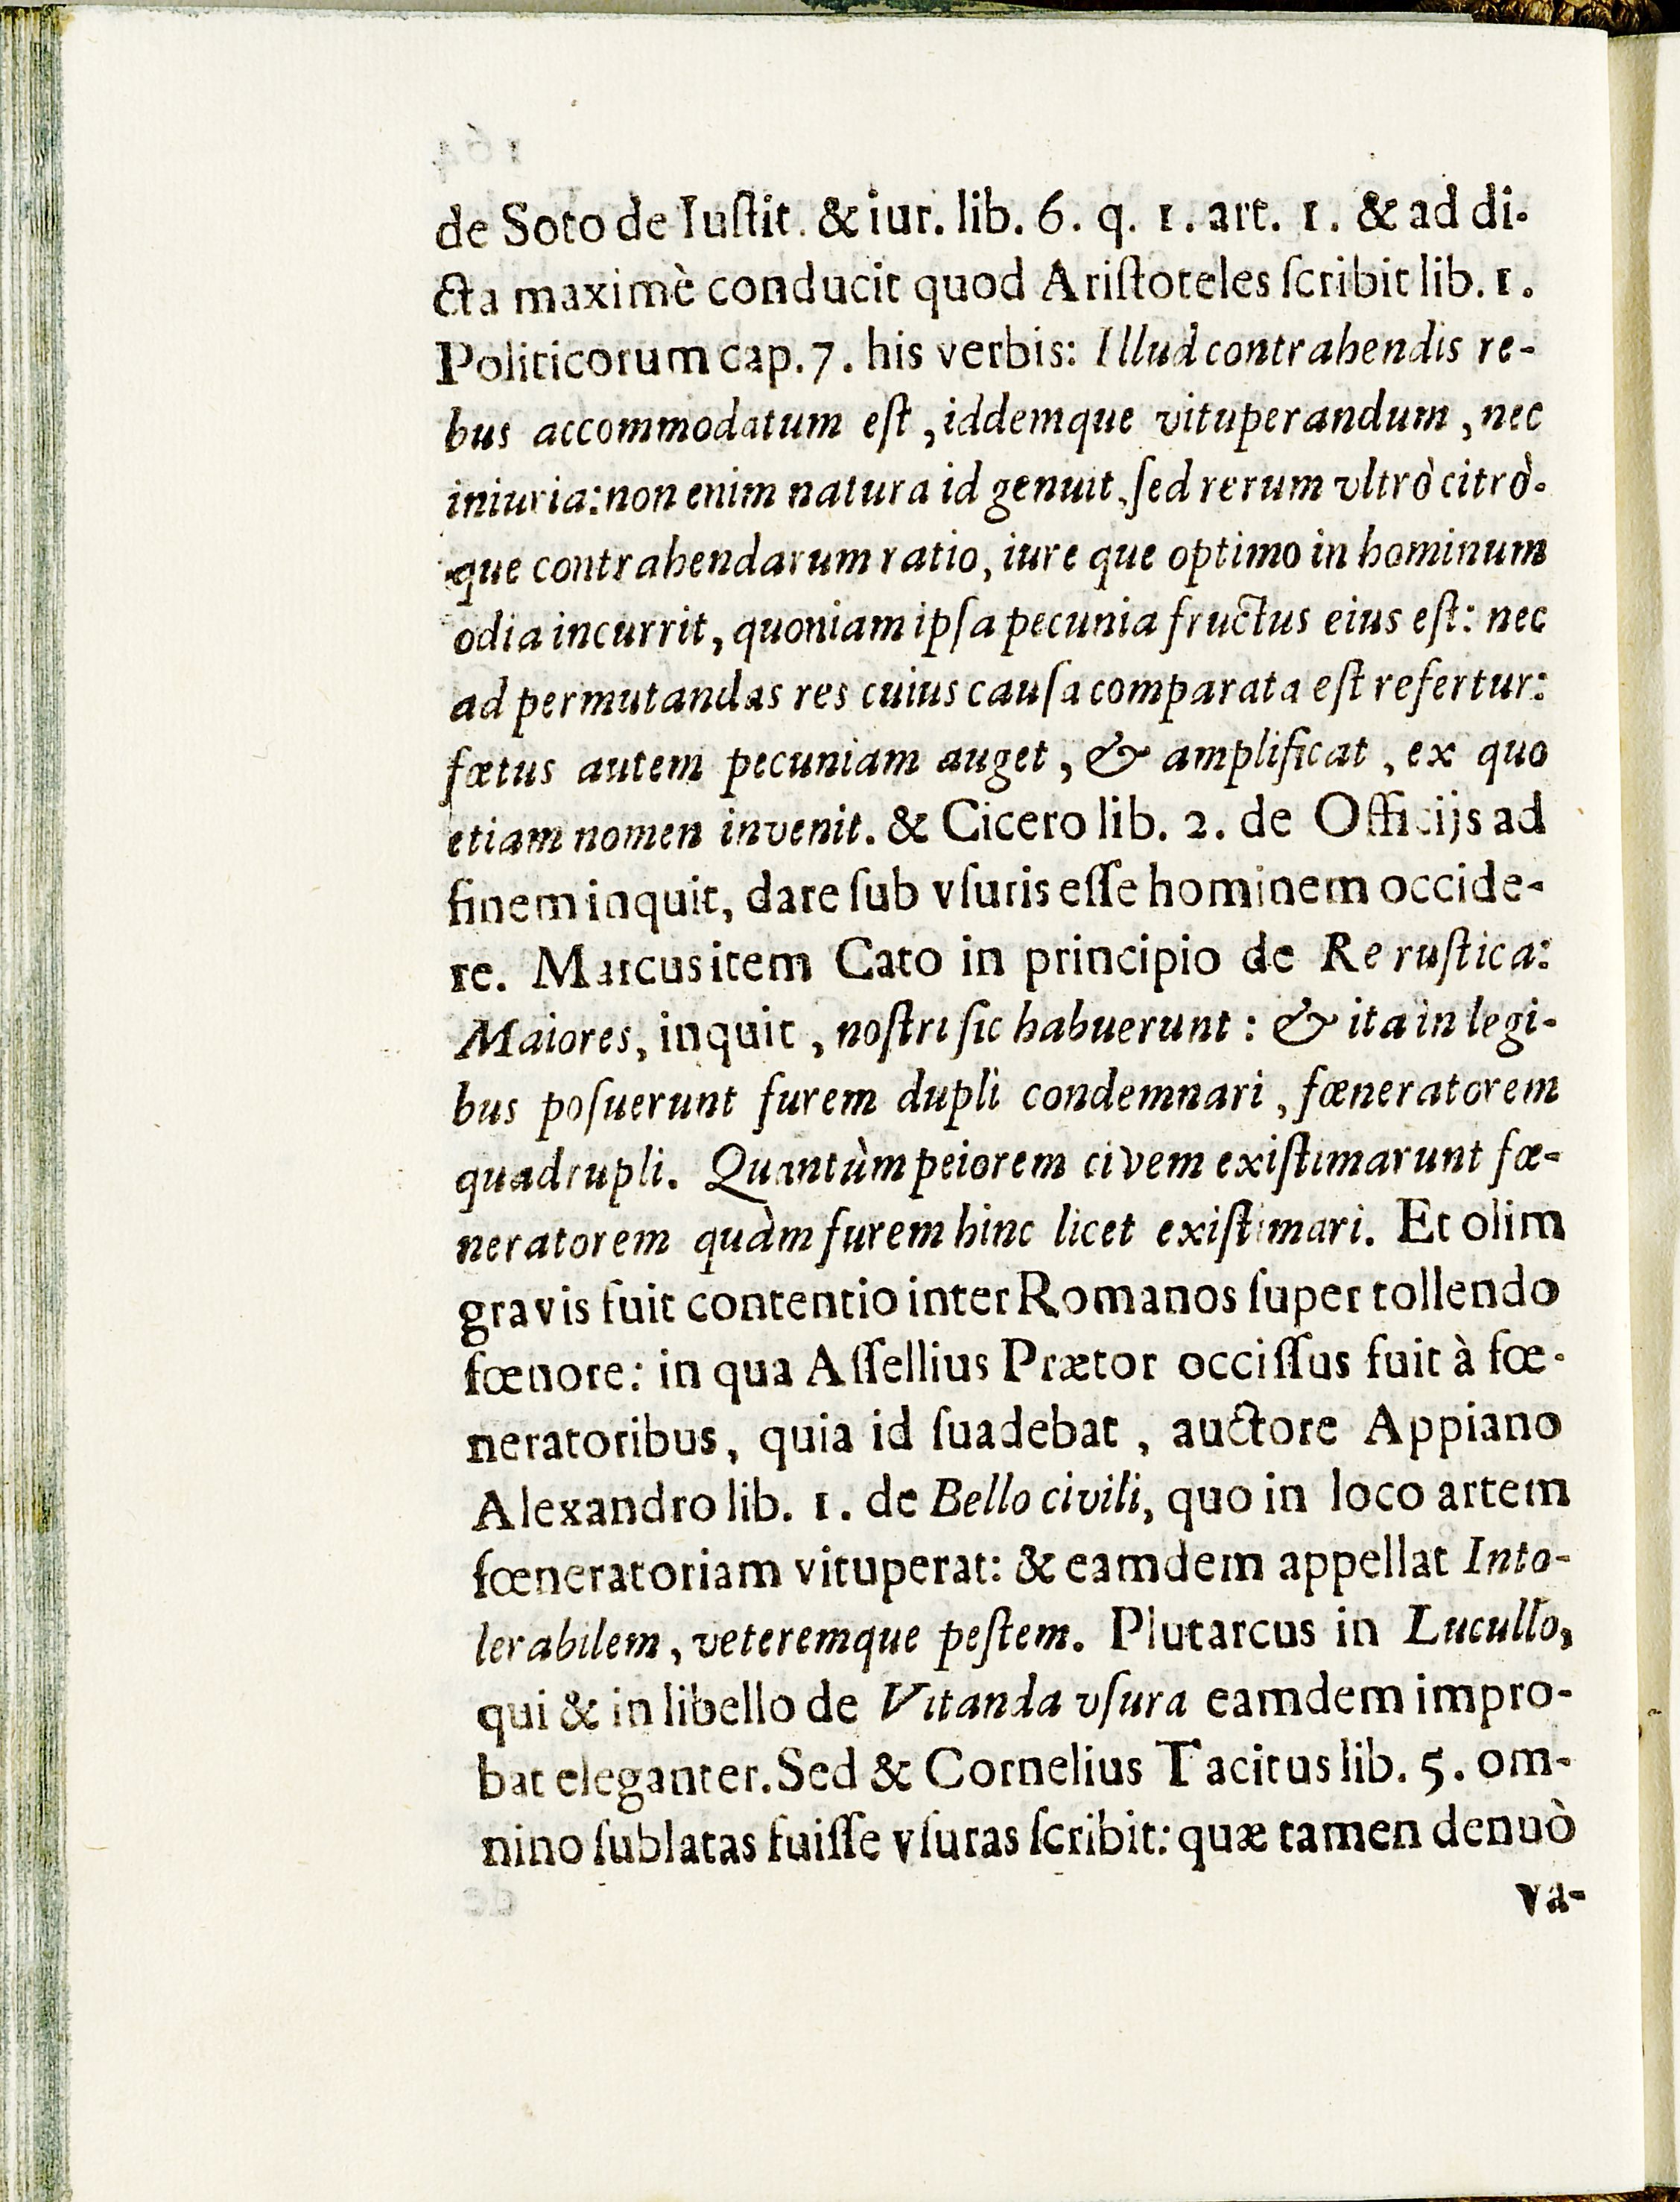 de Soto de Iuſtit. & iur. lib. 6. q. 1. art. 1. & ad di-
cta maximè conducit quod Ariſtoteles ſcribit lib. 1.
Politicorum cap. 7. his verbis: Illud contrahendis re-
bus accommodatum eſt, iddemque vituperandum, nec
iniuria: non enim natura id genuit, ſed rerum vltrò citrò-
que contrahendarum ratio, iure que optimo in hominum
odia incurrit, quoniam ipſa pecunia fructus eius eſt: nec
ad permutandas res cuius cauſa comparata eſt refertur:
fœtus autem pecuniam auget, & amplificat, ex quo
etiam nomen invenit. & Cicero lib. 2. de Officijs ad
finem inquit, dare ſub vſuris eſſe hominem occide-
re. Marcus item Cato in principio de Re ruſtica:
Maiores, inquit, noſtri ſic habuerunt: & ita in legi-
bus poſuerunt furem dupli condemnari, fœneratorem
quadrupli. Quantùm peiorem civem exiſtimarunt fœ-
neratorem quàm furem hinc licet exiſtimari. Et olim
gravis fuit contentio inter Romanos ſuper tollendo
fœnore: in qua Aſſellius Prætor occiſſus fuit à fœ-
neratoribus, quia id ſuadebat, auctore Appiano
Alexandro lib. 1. de Bello civili, quo in loco artem
fœneratoriam vituperat: & eamdem appellat Into-
lerabilem, veteremque peſtem. Plutarcus in Lucullo,
qui & in libello de Vitanda vſura eamdem impro-
bat eleganter. Sed & Cornelius Tacitus lib. 5. om-
nino ſublatas fuiſſe vſuras ſcribit: quæ tamen denuò
va-